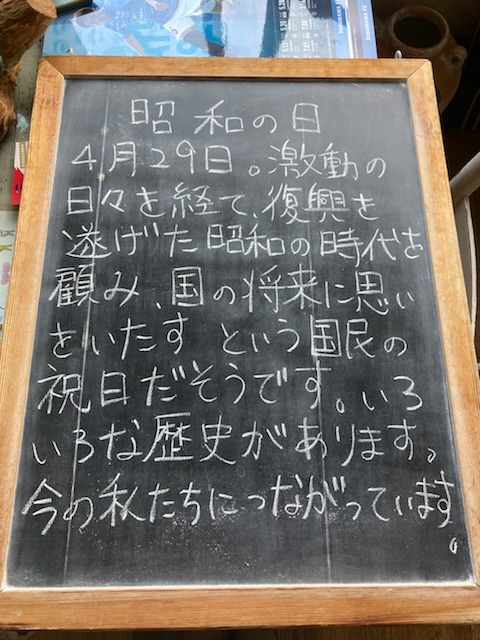 昭和の日
4月29日。激動の
日々を経て、復興を
遂げた昭和の時代を
顧み、国の将来に思い
をいたす という国民の
祝日だそうです。いろ
いろな歴史があります。
今の私たちにつながっています
。